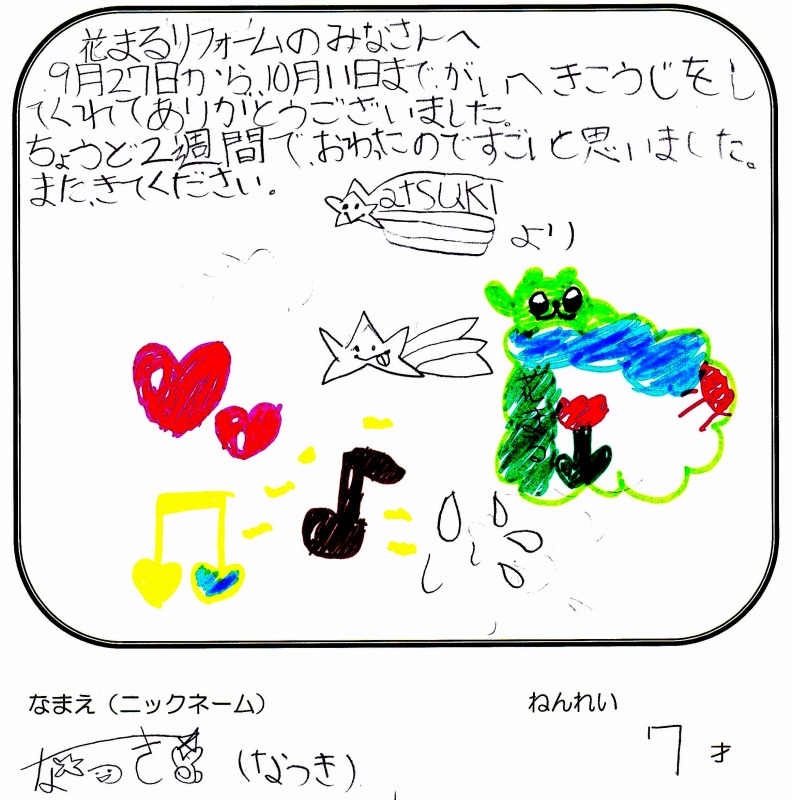 花まるリフォームのみなさんへ
9月27日から、10月11日まで、がいへきこうじをし
てくれてありがとうございました。
ちょうど2週間で、おわったのですごいと思いました。
また、きてください。
atSUKI
より
花まる
なまえ（ニックネーム）
ねんれい
なつき（なつき）
7才